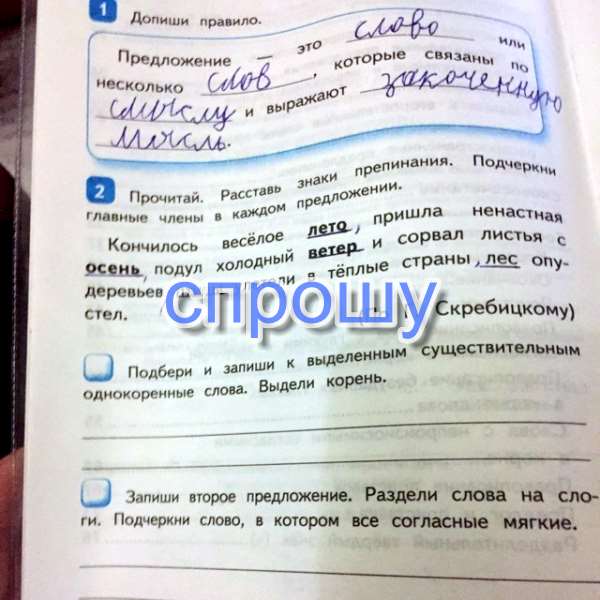 1 Допиши правило.
Предложение — это слово или
несколько слов, которые связаны по
смыслу и выражают закоченную
мысль.
2 Прочитай. Расставь знаки препинания. Подчеркни
главные члены в каждом предложении.
Кончилось весёлое лето, пришла ненастная
осень, подул холодный ветер и сорвал листья с
деревьев в тёплые страны, лес опу-
стел.
спрошу
Скребицкому)
Подбери и запиши к выделенным существительным
однокоренные слова. Выдели корень.
Запиши второе предложение. Раздели слова на сло-
ги. Подчеркни слово, в котором все согласные мягкие.